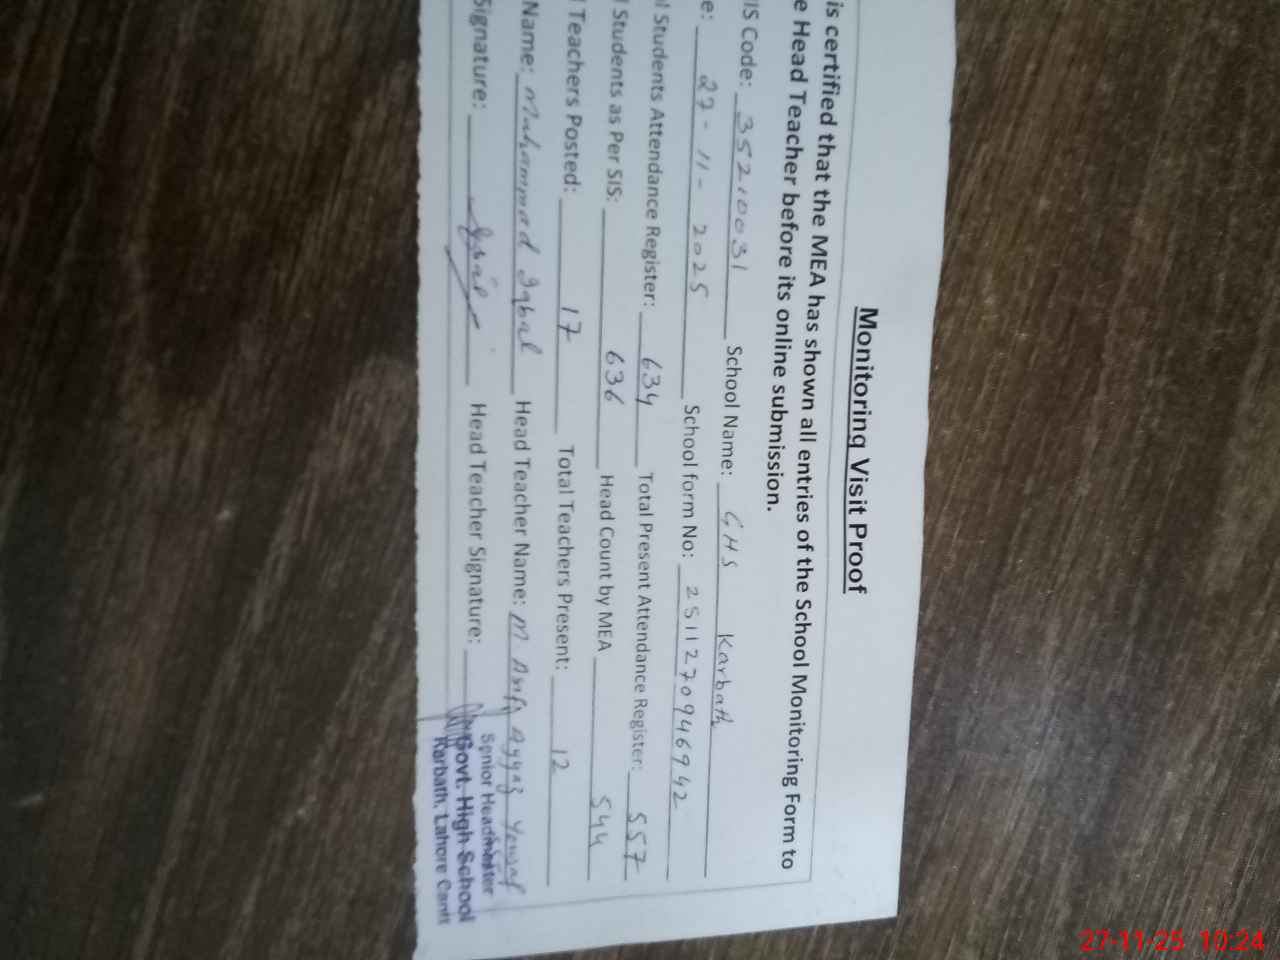 Monitoring Visit Proof
is certified that the MEA has shown all entries of the School Monitoring Form to
e Head Teacher before its online submission.
IS Code: 35210031 School Name: GHS Karbath
e: 27-11-2025 School form No: 2511270946942
l Students Attendance Register: 634 Total Present Attendance Register: 557
l Students as Per SIS: 636 Head Count by MEA 544
l Teachers Posted: 17 Total Teachers Present: 12
Name: Muhammad Iqbal Head Teacher Name: M. Ayyaz Yousaf
Signature: Head Teacher Signature:
Senior Headmaster
Govt. High School
Karbath, Lahore Cantt
27-11-25 10:24